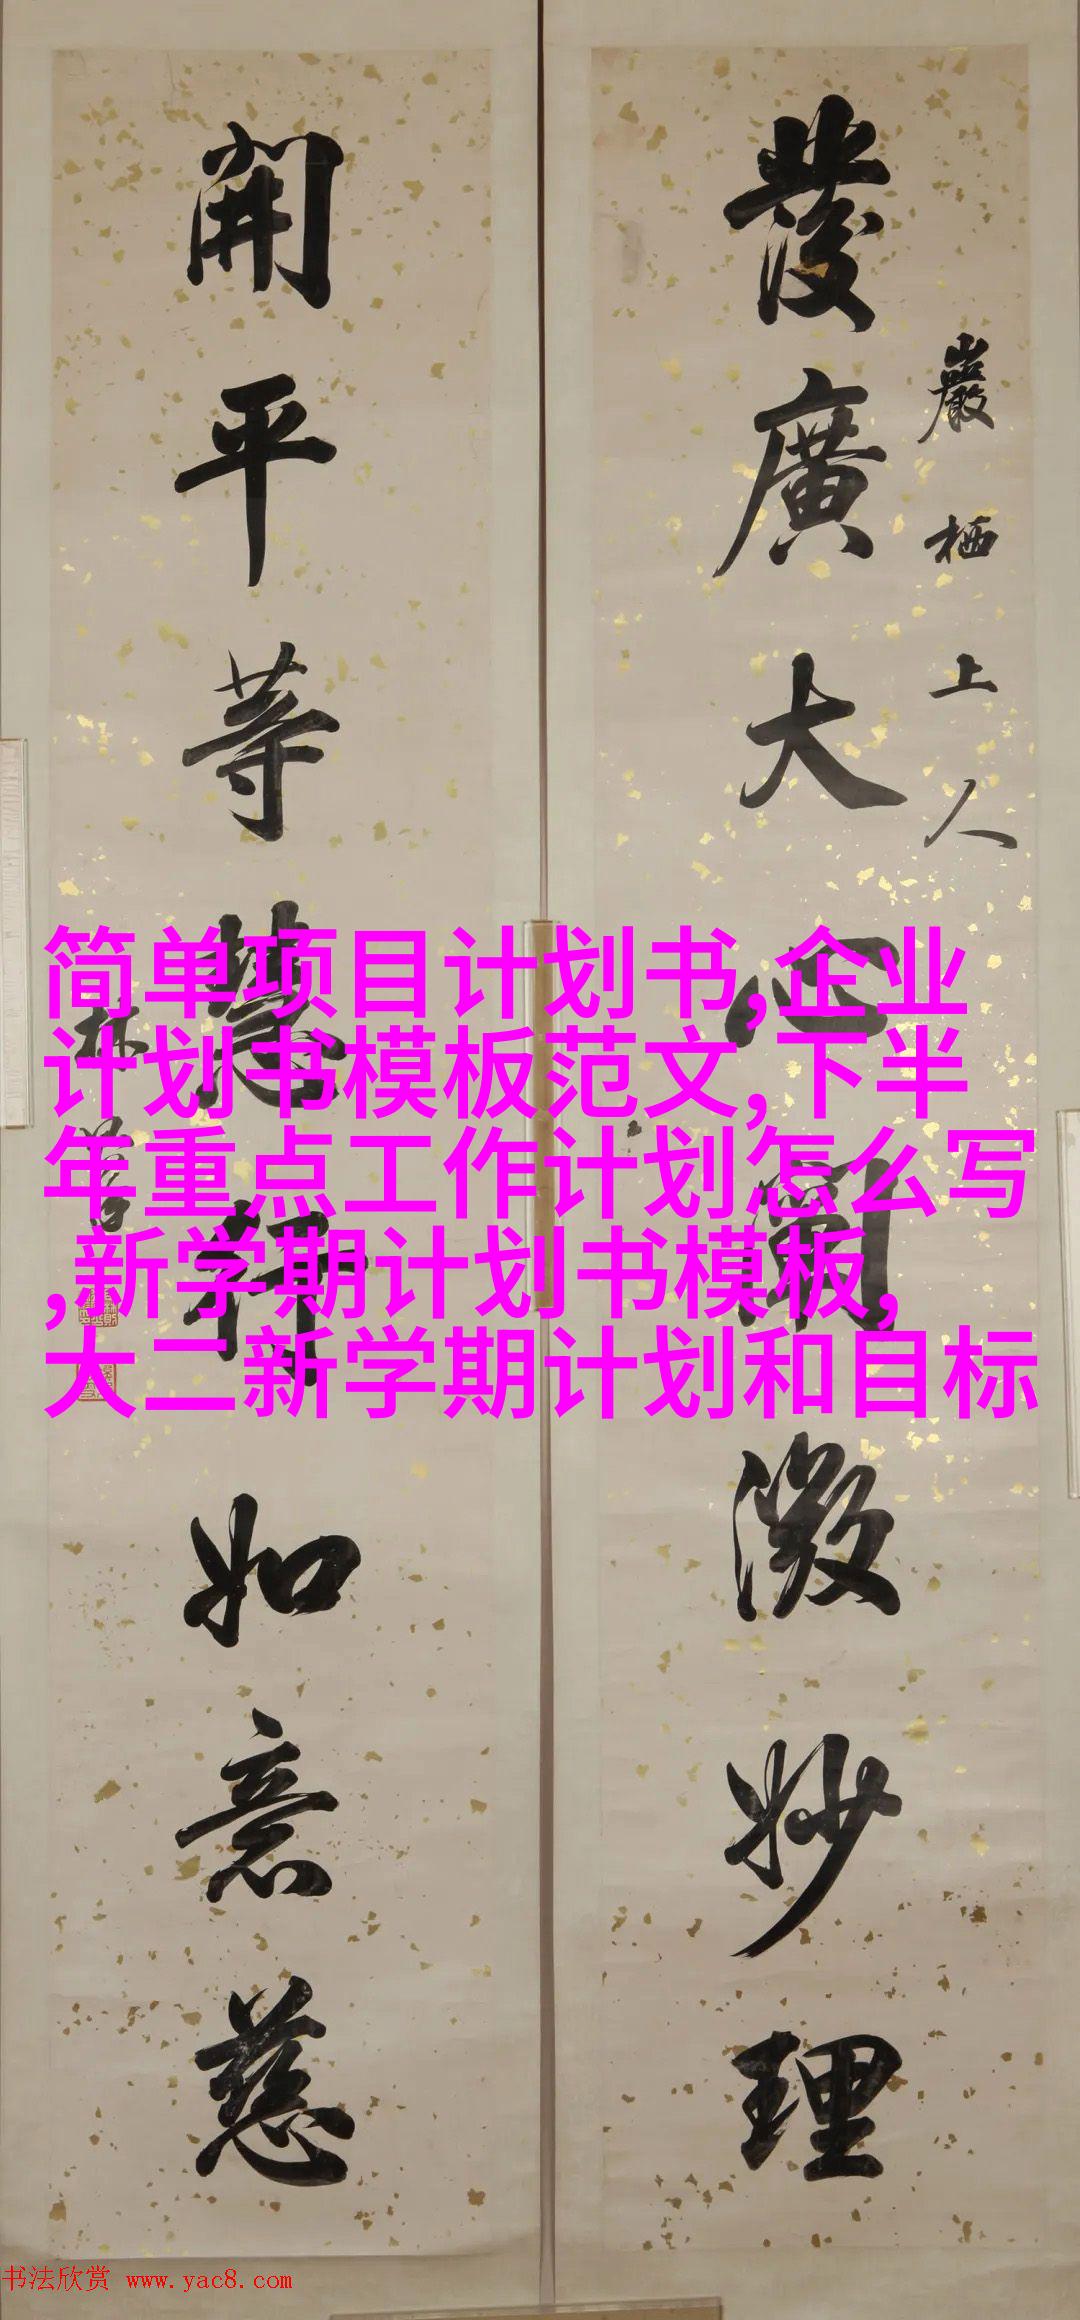 嚴栖上人
發廣大心闡微妙理
開平等慧行如意慈
林
简单项目计划书,企业
计划书模板范文,下半
年重点工作计划怎么写
,新学期计划书模板,
大二新学期计划和目标
书法欣赏 www.yac8.com